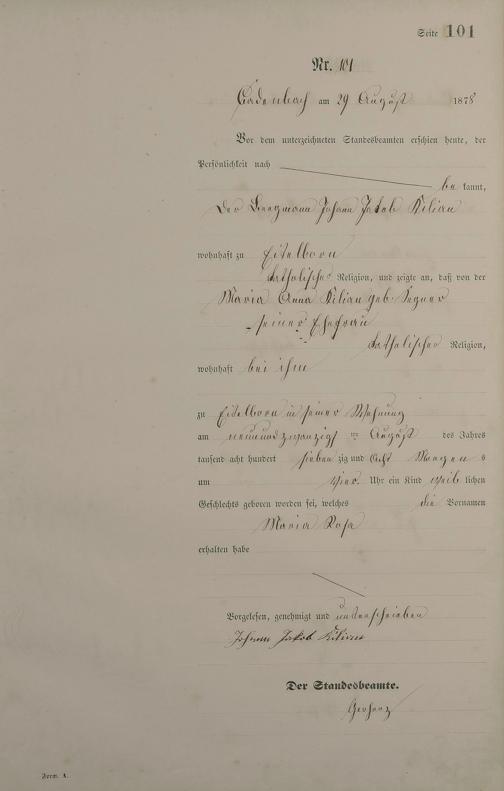 Seite 101
Nr. 101
Cadenbach am 29 August 1878
Vor dem unterzeichneten Standesbeamten erschien heute, der
Persönlichkeit nach
be kannt,
der Bergmann Johann Jakob Kilian
wohnhaft zu Eitelborn
katholischer Religion, und zeigte an, daß von der
Maria Anna Kilian geb
seiner Ehefrau
katholischer Religion,
wohnhaft bei ihm
zu Eitelborn in seiner Wohnung
am neunundzwanzigsten August des Jahres
tausend acht hundert siebenzig und acht Morgens
um vier Uhr ein Kind weiblichen
Geschlechts geboren worden sei, welches die Vornamen
Maria Rosa
erhalten habe
Vorgelesen, genehmigt und unterschrieben
Johann Jakob Kilian
Der Standesbeamte.
Form. A.